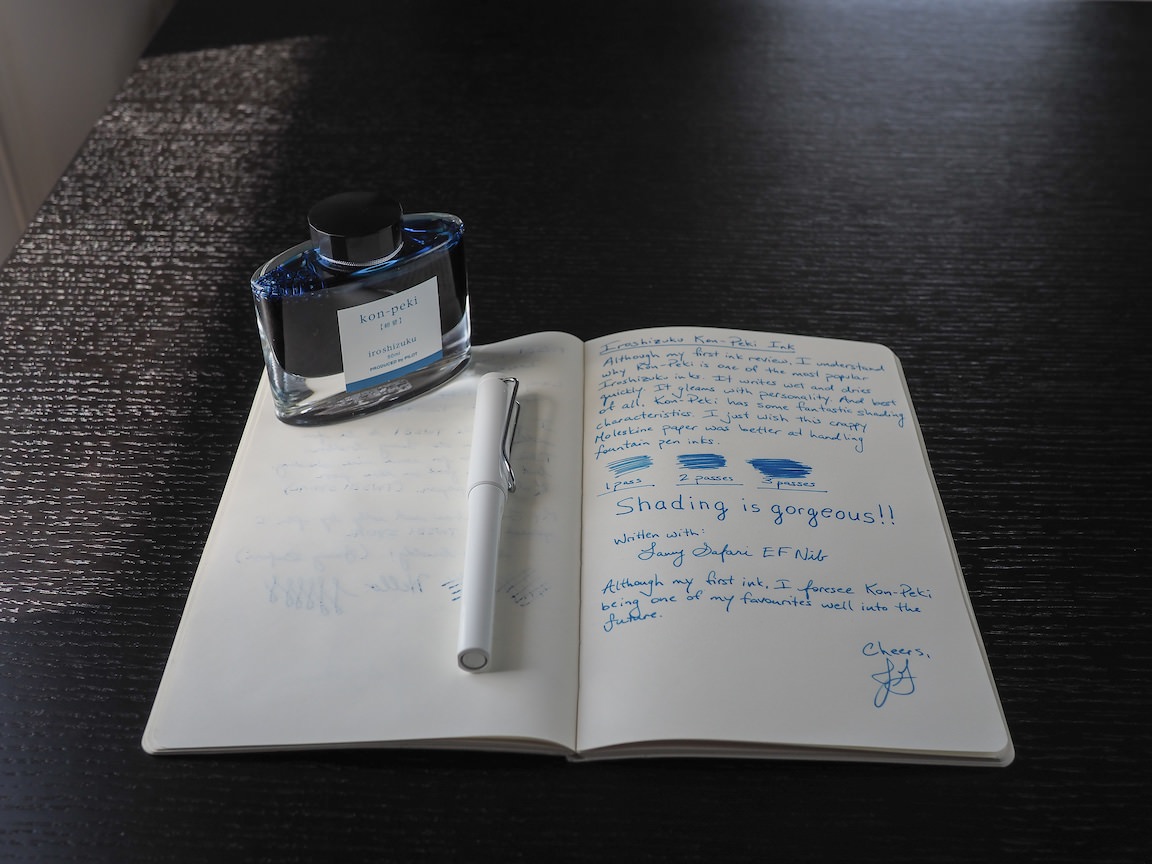 kon-peki
【紺碧】
iroshizuku
50ml
PRODUCED by PILOT
Iroshizuku Kon-Peki Ink
Although my first ink review, I understand
why Kon-Peki is one of the most popular
Iroshizuku inks. It writes wet and dries
quickly. It gleams with personality. And best
of all, Kon-Peki has some fantastic shading
characteristics. I just wish this crappy
Moleskine paper was better at handling
fountain pen inks.
1 pass 2 passes 3 passes
Shading is gorgeous!!
Written with:
Lamy Safari EF Nib
Although my first ink, I foresee Kon-Peki
being one of my favourites well into the
future.
Cheers,
Hello